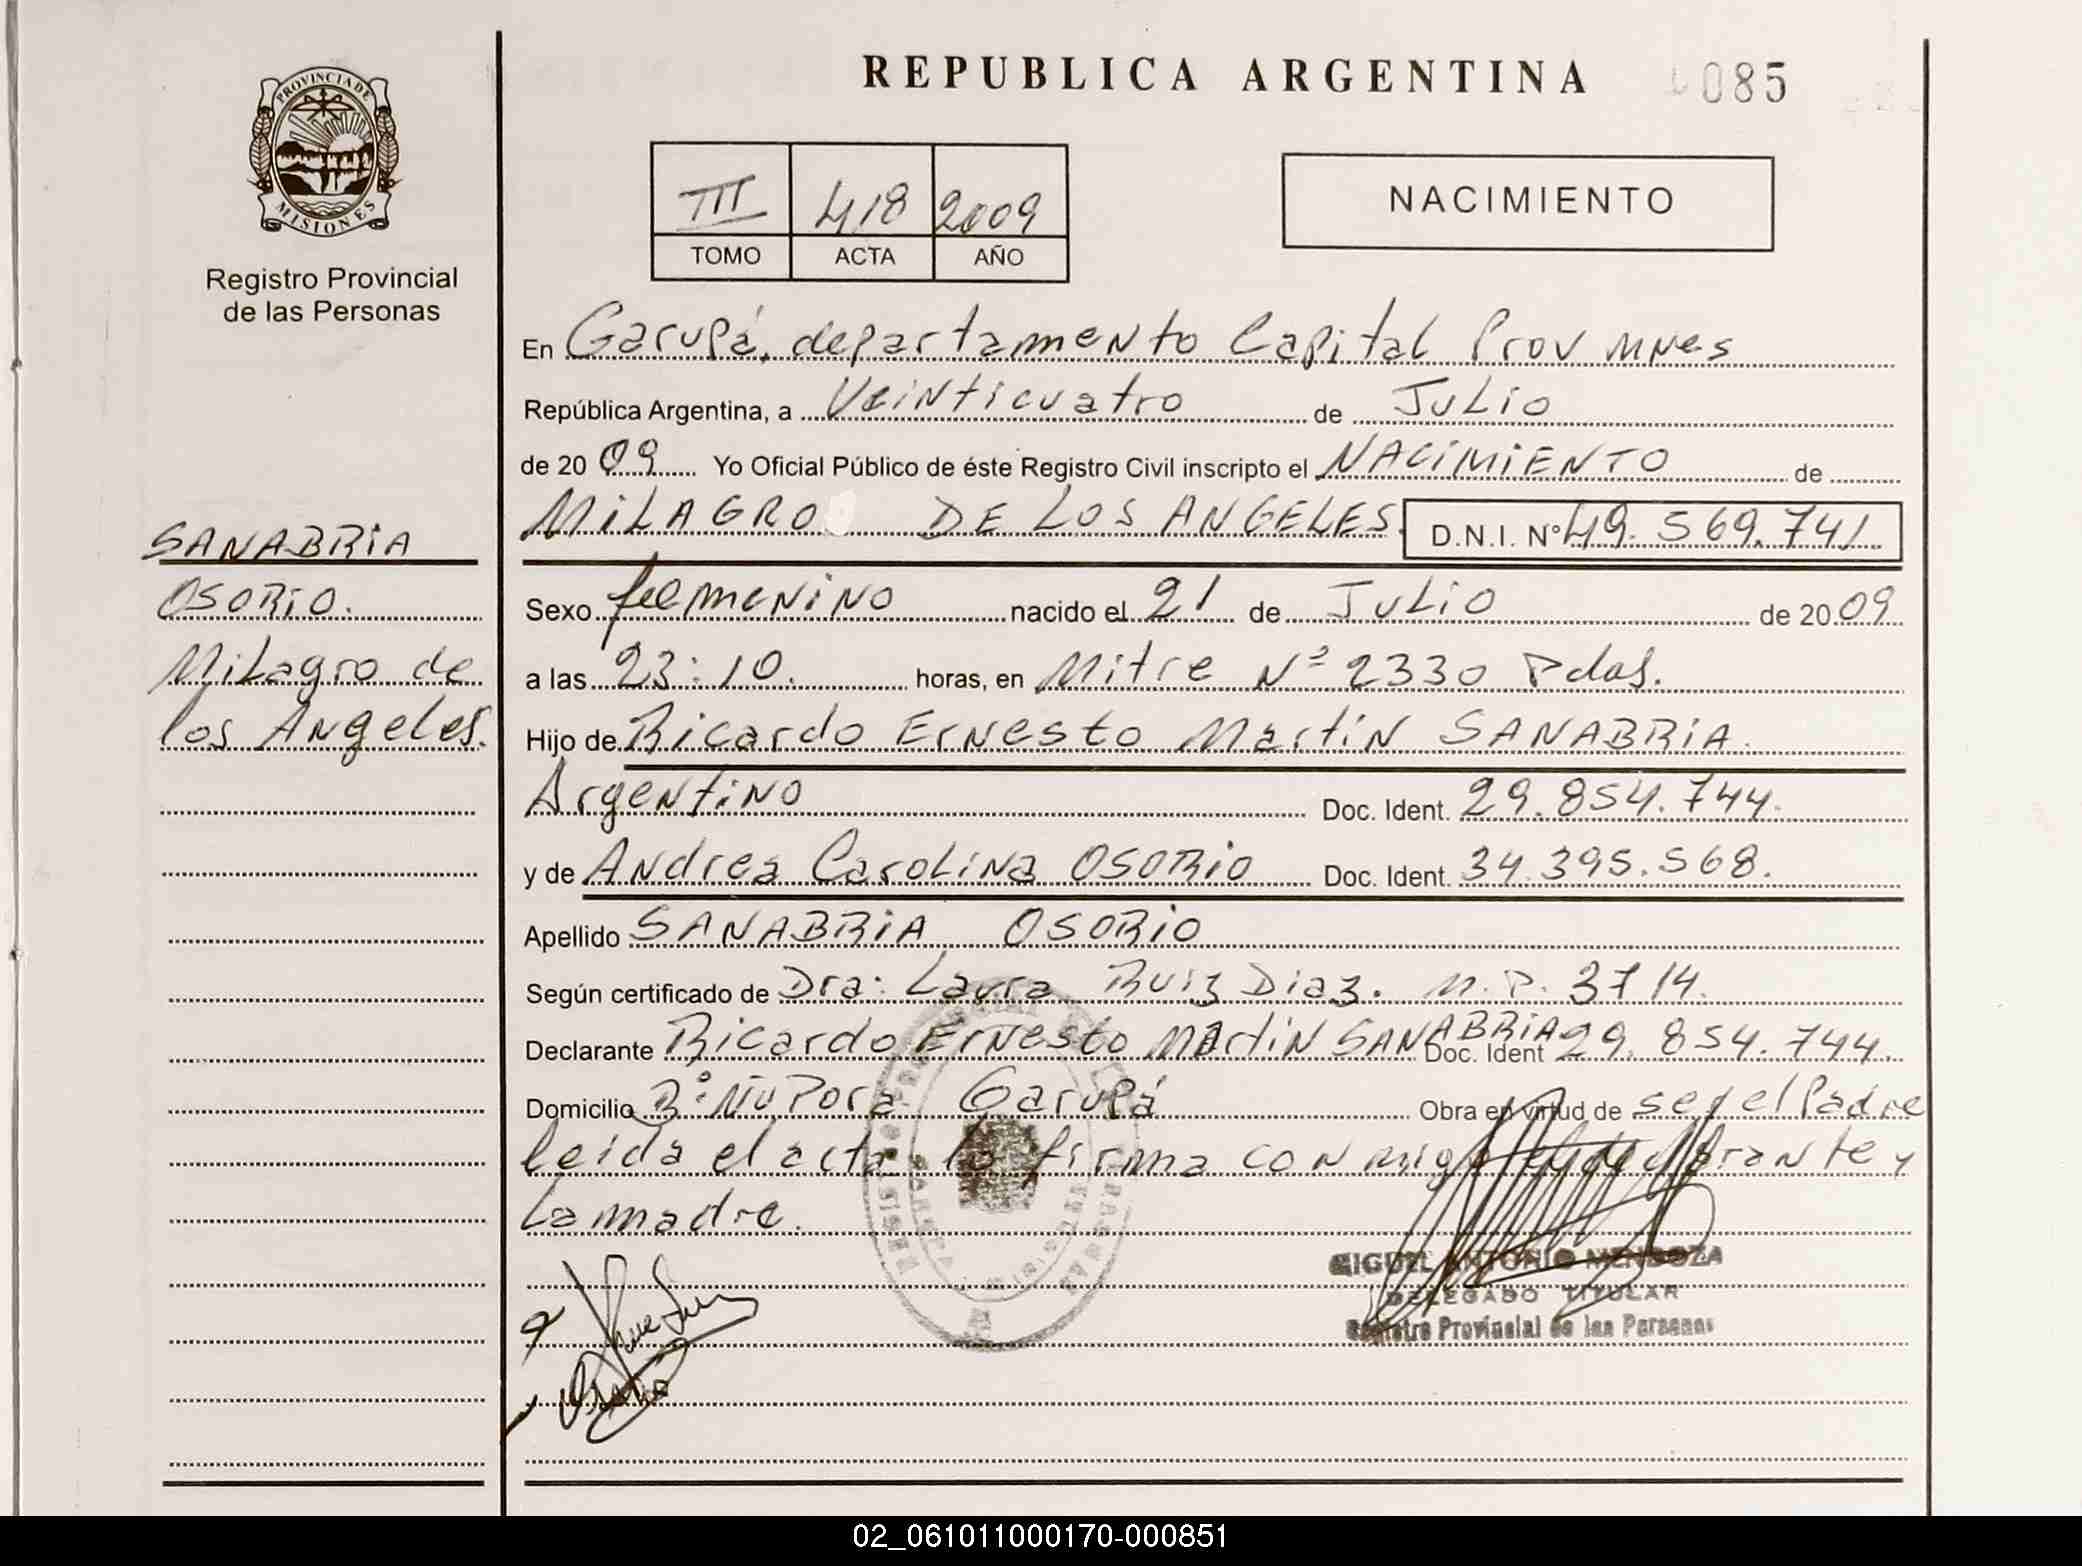 REPUBLICA ARGENTINA 085
PROVINCIA DE
MISIONES
Registro Provincial
de las Personas
III 418 2009
TOMO ACTA AÑO
NACIMIENTO
En Garupá, departamento Capital Prov Mnes
República Argentina, a Veinticuatro de Julio
de 2009 Yo Oficial Público de éste Registro Civil inscripto el NACIMIENTO de
MILAGRO DE LOS ANGELES D.N.I. Nº 49.569.741
SANABRIA
OSORIO.
Milagro de
los Angeles.
Sexo femenino nacido el 21 de Julio de 2009
a las 23:10. horas, en Mitre Nº 2330 Pdas.
Hijo de Ricardo Ernesto Martin SANABRIA
Argentino Doc. Ident. 29.854.744.
y de Andrea Carolina OSORIO Doc. Ident. 34.395.568.
Apellido SANABRIA OSORIO
Según certificado de Dra: Laura Ruiz Diaz. M.P. 3714.
Declarante Ricardo Ernesto Martin SANABRIA Doc. Ident 29.854.744.
Domicilio Bº Ñu Pora Garupá Obra en virtud de ser el Padre
leida el acta la firma conmigo el declarante y
La madre.
MIGUEL ANTONIO MENDOZA
DELEGADO TITULAR
Registro Provincial de las Personas
02_061011000170-000851